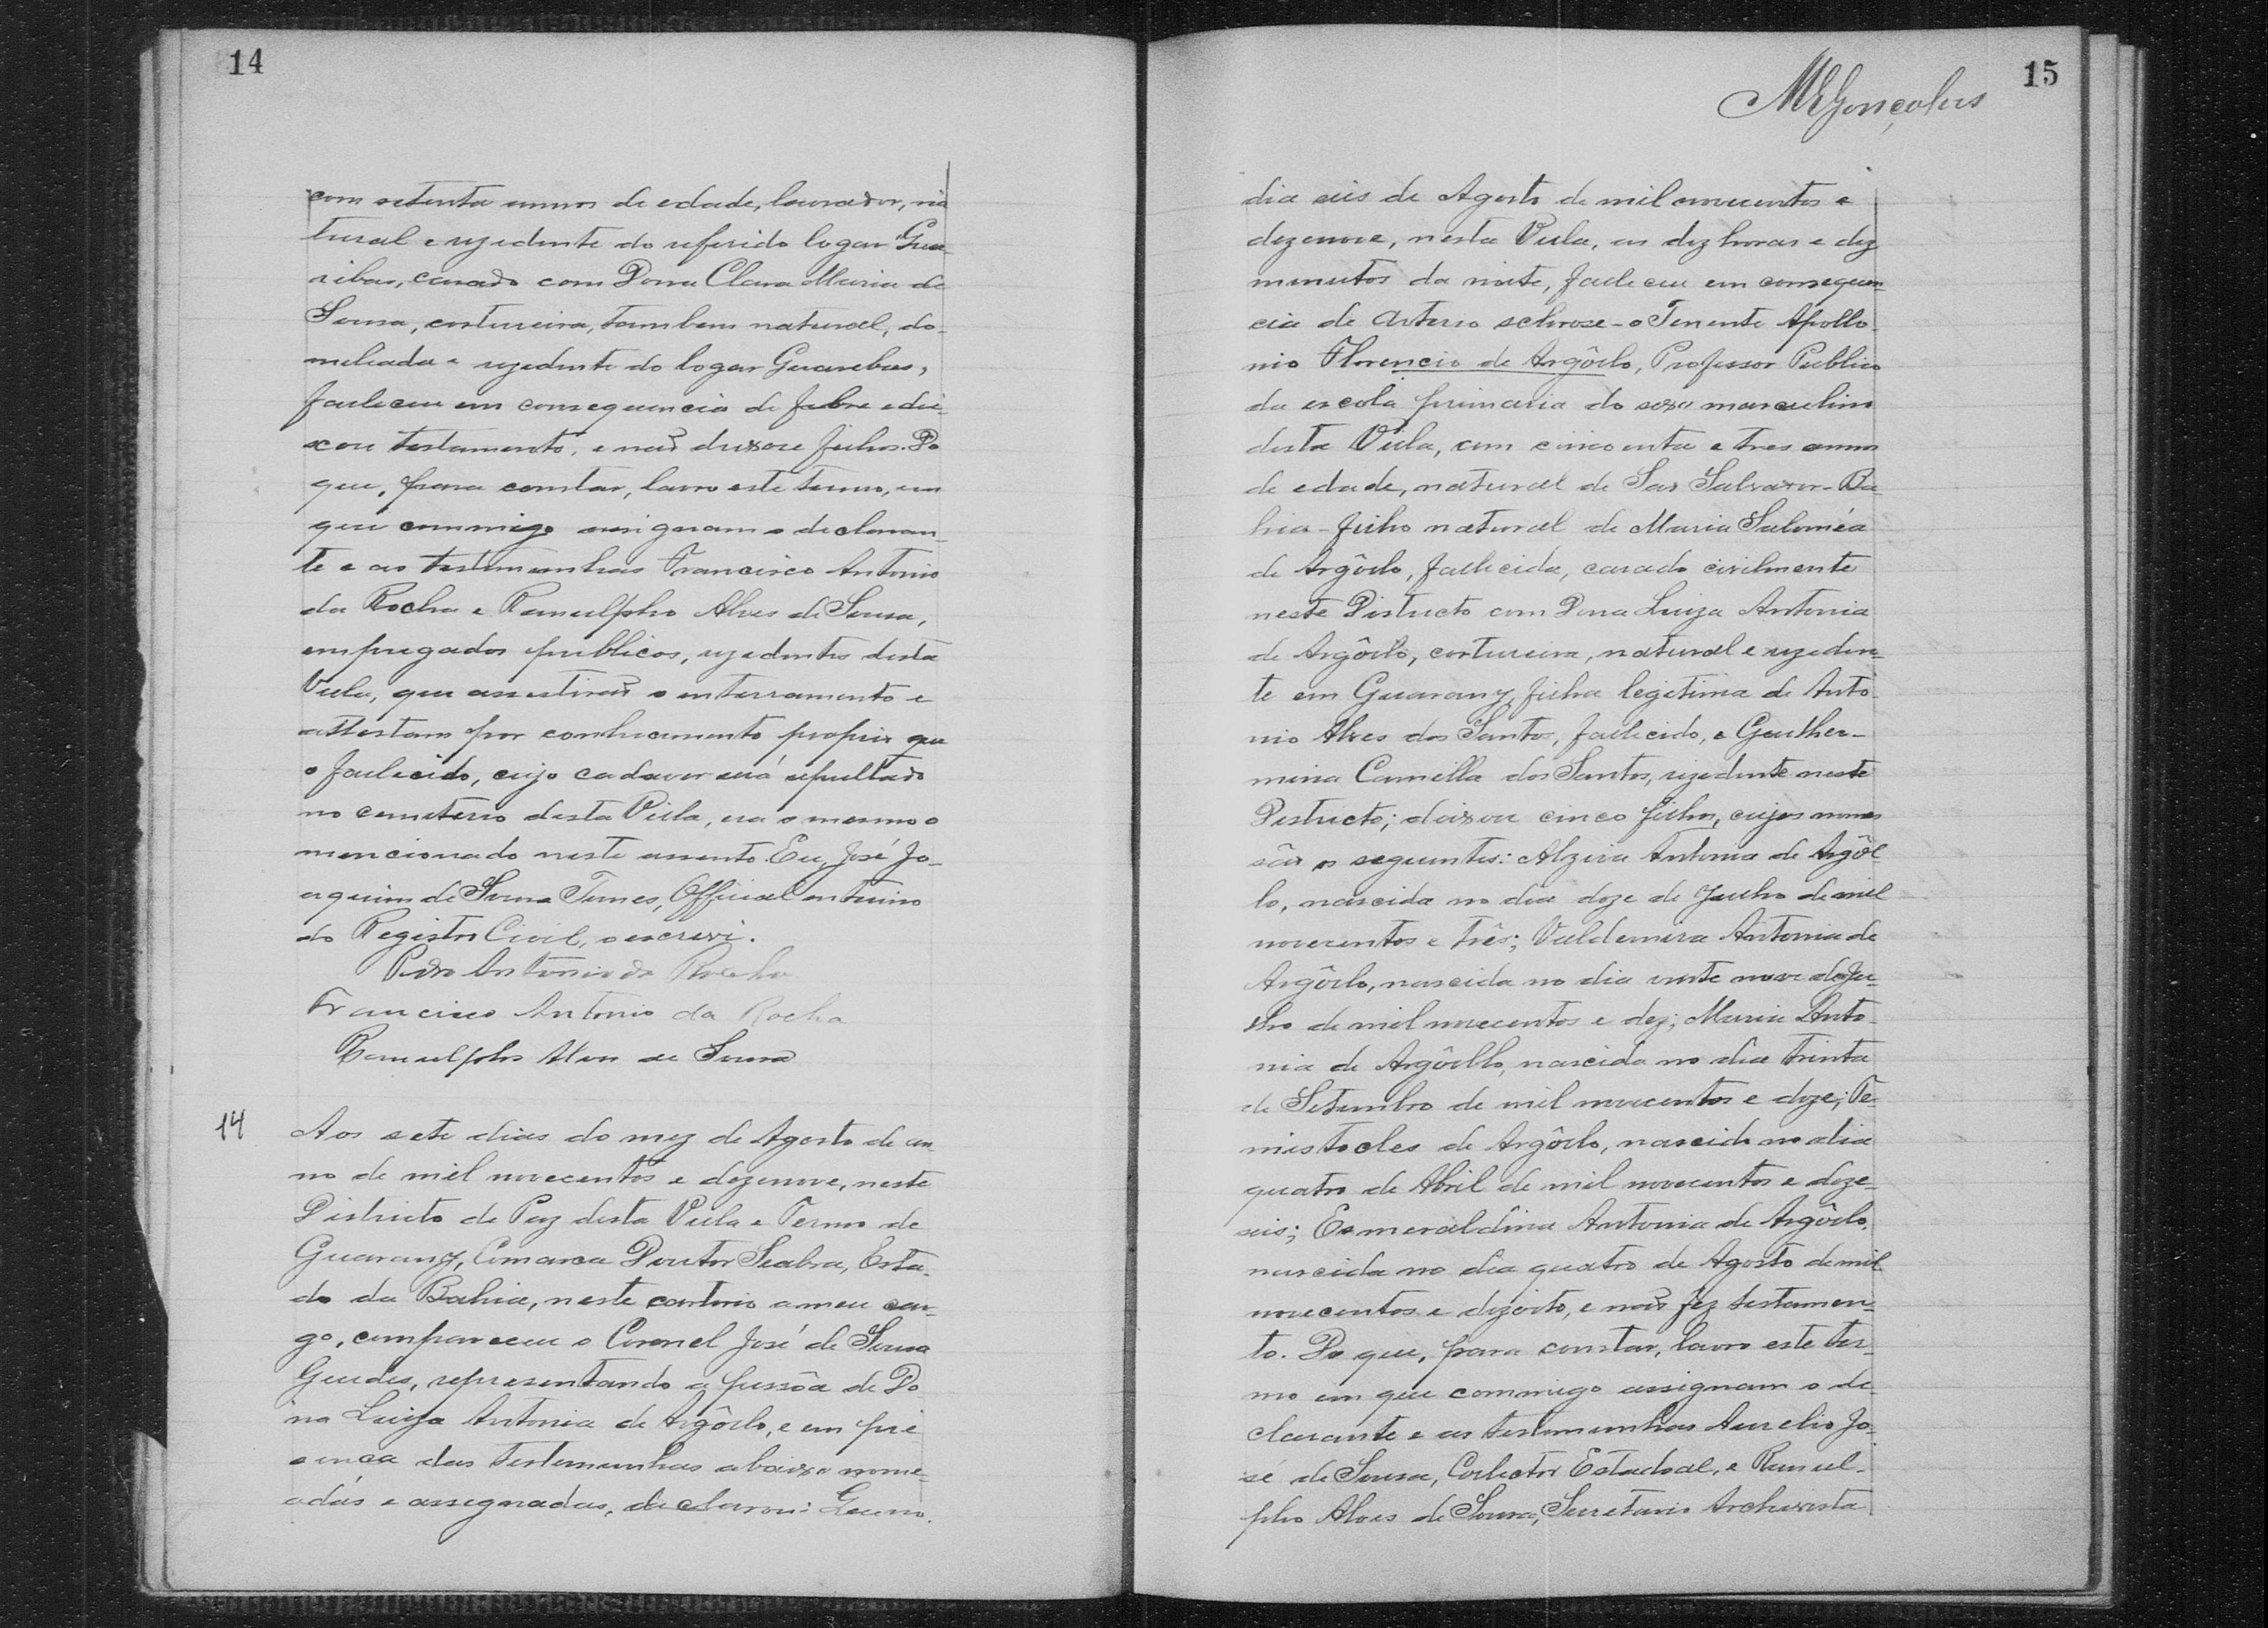 14
com setenta annos de edade, lavrador, na
tural e rezedente do referido logar Gua-
ribas, casado com Dona Clara Maria de
Sousa, costureira, tambem natural, do-
meliada e rezedente do logar Guarebas,
falleceu em consequencia de febre e dei-
xou testamento, e não deixou filhos. Do
que, para constar, lavro este termo, em
que commigo assignam o declaran-
te e as testemunhas Francisco Antonio
da Rocha e Ranulpho Alves de Sousa,
empregados publicos, rezedentes desta
Villa, que assestirão o enterramento e
attestam por conhecemento proprio que
o fallecido, cujo cadaver será sepultado
no cemeterio desta Villa, era o mesmo o
mencionado neste assento. Eu, José Jo-
aquim de Sousa Tunes, Official enterino
do Registro Civil, o escrevi.
Pedro Antonio da Rocha
Francisco Antonio da Rocha
Ranulpho Alves de Sousa
14
Aos sete dias do mez de Agosto de an-
no de mil novecentos e dezenove, neste
Districto de Paz desta Villa e Termo de
Guarany, Comarca Doutor Seabra, Esta-
do da Bahia, neste cartorio a meu car-
go, compareceu o Coronel José de Sousa
Guedes, representando a pessôa de Do
na Luiza Antonia de Argôllo, e em pre
sença das testemunhas abaixo nome-
adas e assegnadas, declarou: Que no
15
MEGonçalves
dia seis de Agosto de mil novecentos e
dezenove, nesta Villa, as dez horas e dez
minutos da noite, falleceu em consequen-
cia de arterio sclerose - o Tenente Apollo-
nio Florencio de Argôllo, Professor Publico
da escola primaria do sexo masculino
desta Villa, com cincoenta e tres annos
de edade, natural de São Salvador - Ba-
hia - filho natural de Maria Saloméa
de Argôllo, fallecida, casado civilmente
neste Districto com Dona Luiza Antonia
de Argôllo, costureira, natural e rezeden-
te em Guarany, filha legetima de Anto-
nio Alves dos Santos, fallecido, e Guilher-
mina Camilla dos Santos, rezedente neste
Destricto; deixou cinco filhos, cujos nomes
são os seguentes: Alzira Antonia de Argôl-
lo, nascida no dia doze de Julho de mil
novecentos e três; Valdemira Antonia de
Argôllo, nascida no dia vinte nove de Ju-
lho de mil novecentos e dez; Maria Anto-
nia de Argôllo, nascida no dia trinta
de Setembro de mil novecentos e doze; Te-
mistocles de Argôllo, nascido no dia
quatro de Abril de mil novecentos e deze-
seis; Esmeraldina Antonia de Argôllo,
nascida no dia quatro de Agosto de mil
novecentos e dezoito, e não fez testamen-
to. Do que, para constar, lavro este ter-
mo em que commigo assignam o de-
clarante e as testemunhas Aurelio Jo-
sé de Sousa, Collector Estadoal, e Ranul-
pho Alves de Sousa, Secretario Archevista